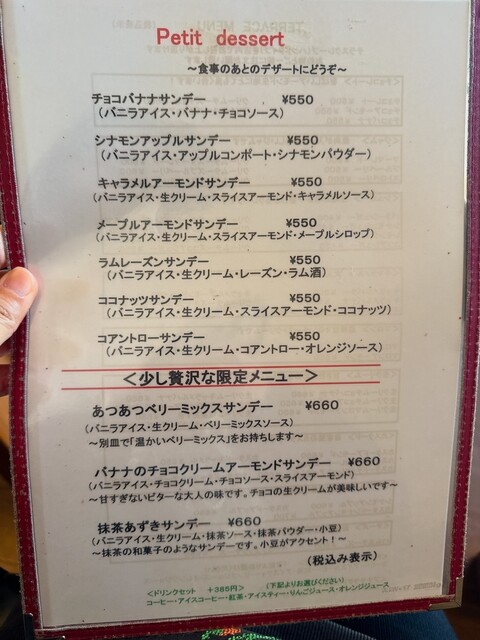 Petit dessert
～食事のあとのデザートにどうぞ～
チョコバナナサンデー ¥550
（バニラアイス・バナナ・チョコソース）
シナモンアップルサンデー ¥550
（バニラアイス・アップルコンポート・シナモンパウダー）
キャラメルアーモンドサンデー ¥550
（バニラアイス・生クリーム・スライスアーモンド・キャラメルソース）
メープルアーモンドサンデー ¥550
（バニラアイス・生クリーム・スライスアーモンド・メープルシロップ）
ラムレーズンサンデー ¥550
（バニラアイス・生クリーム・レーズン・ラム酒）
ココナッツサンデー ¥550
（バニラアイス・生クリーム・スライスアーモンド・ココナッツ）
コアントローサンデー ¥550
（バニラアイス・生クリーム・コアントロー・オレンジソース）
＜少し贅沢な限定メニュー＞
あつあつベリーミックスサンデー ¥660
（バニラアイス・生クリーム・ベリーミックスソース）
～別皿で「温かいベリーミックス」をお持ちします～
バナナのチョコクリームアーモンドサンデー ¥660
（バニラアイス・チョコクリーム・チョコソース・スライスアーモンド）
～甘すぎないビターな大人の味です。チョコの生クリームが美味しいです～
抹茶あずきサンデー ¥660
（バニラアイス・生クリーム・抹茶ソース・抹茶パウダー・小豆）
～抹茶の和菓子のようなサンデーです。小豆がアクセント！～
（税込み表示）
＜ドリンクセット ＋385円＞ （下記よりお選びください）
コーヒー・アイスコーヒー・紅茶・アイスティー・りんごジュース・オレンジジュース